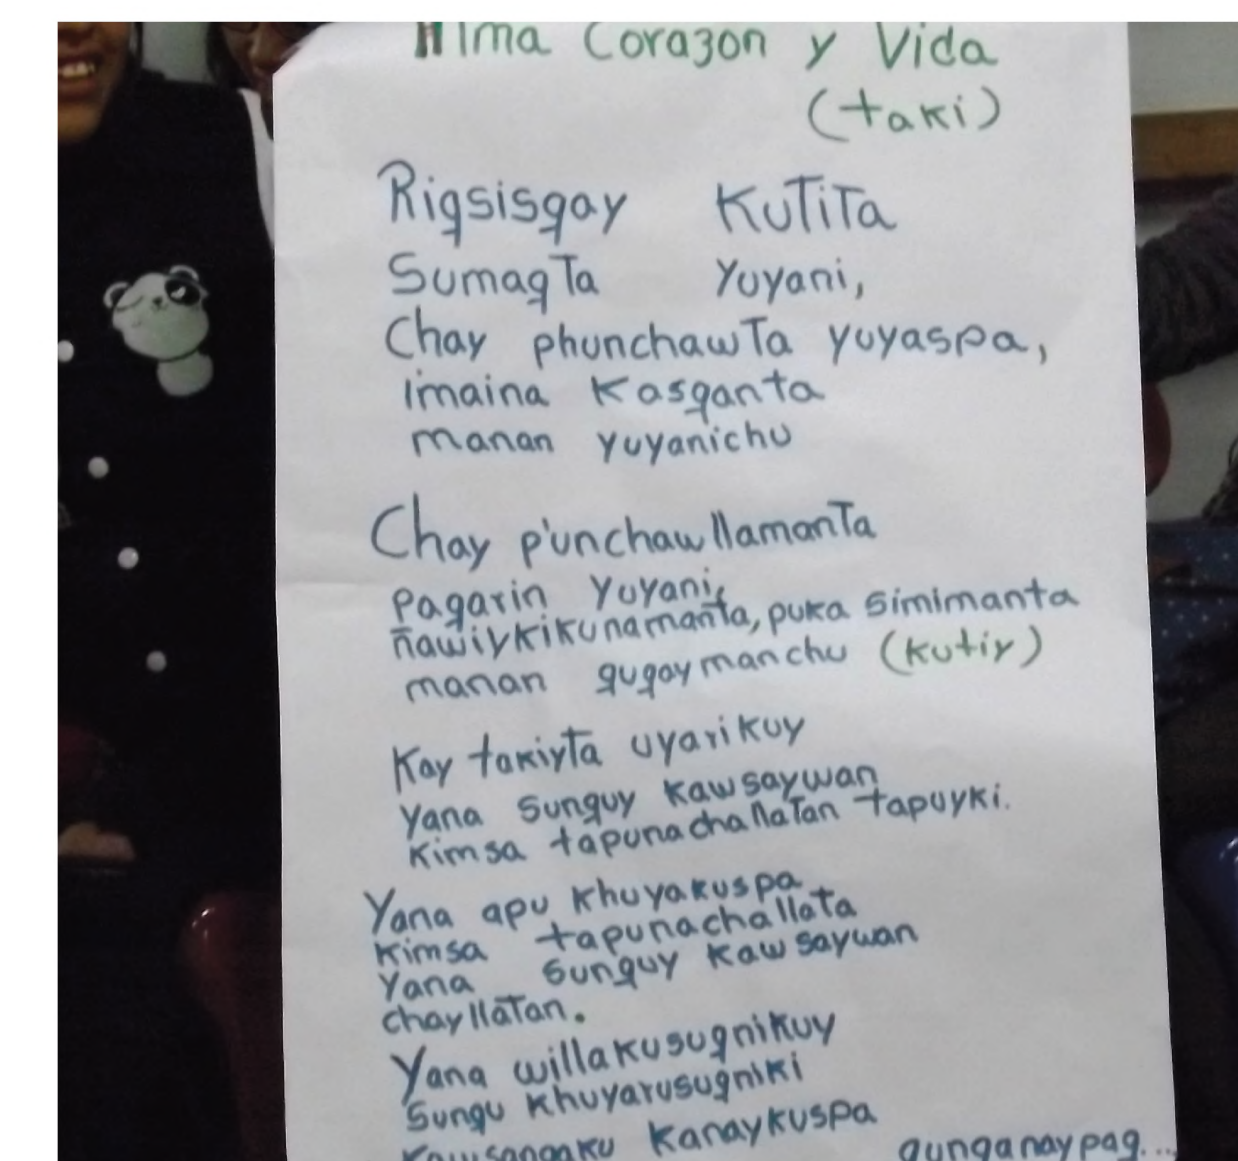 Alma Corazon y Vida
(taki)
Riqsisqay KuTiTa
SumaqTa Yuyani,
Chay phunchawTa yuyaspa,
imaina Kasqanta
manan yuyanichu
Chay p'unchawllamanTa
paqarin Yuyani,
ñawiykikunamanta, puka simimanta
manan quqaymanchu (kutiy)
Kay takiyta uyarikuy
Yana Sunquy kawsaywan
Kimsa tapunachallaTan tapuyki.
Yana apu khuyakuspa
Kimsa tapunachallata
Yana Sunquy kawsaywan
chayllaTan.
Yana willakusuqnikuy
Sunqu khuyarusuqniki
kanaykuspa
qunqanaypaq...